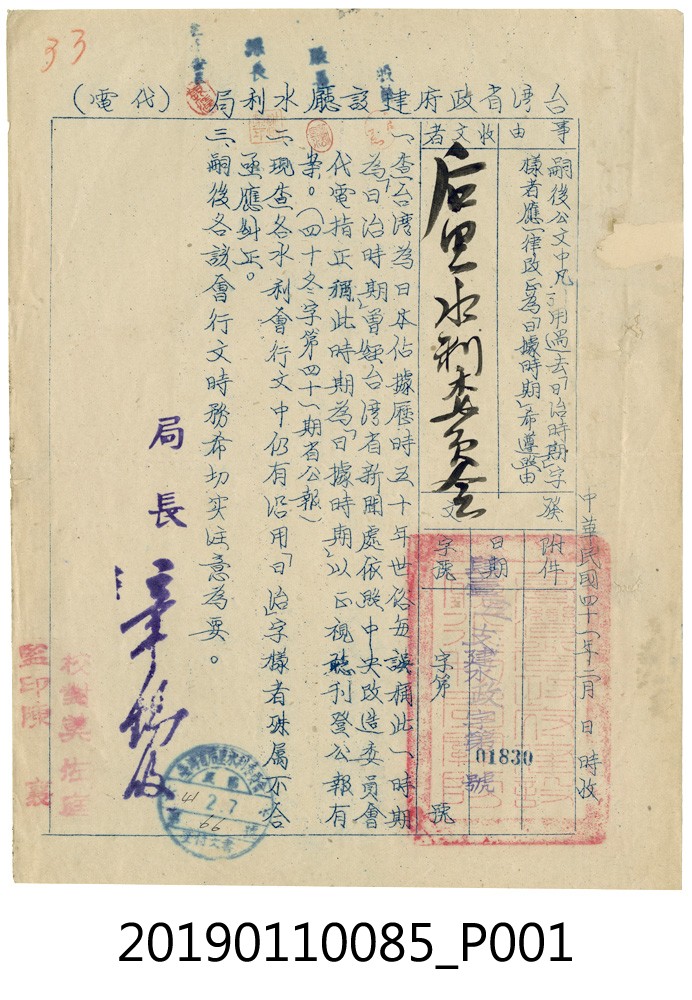 33
台湾省政府建設廳水利局(代電)
事由
嗣後公文中凡引用過去「日治時期」字
樣者應一律改正為「日據時期」希遵照由
收文者
后里水利委員会
中華民國四十一年二月 日 時收
發文
附件
日期
字號
字第 號
建政字第 號
01830
一、查台湾為日本佔據歷時五十年世俗每誤稱此一時期
為「日治時期」曾經台湾省新聞處依照中央改造委員會
代電指正稱此時期為「日據時期」以正視聽刊登公報有
案。(四十冬字第四十一期省公報)
二、現查各水利會行文中仍有沿用「日治字樣者殊属不合
亟應糾正。
三、嗣後各該會行文時務希切实注意為要。
局長
章錫綬
校對
監印陳
41 2.7
66
20190110085_P001